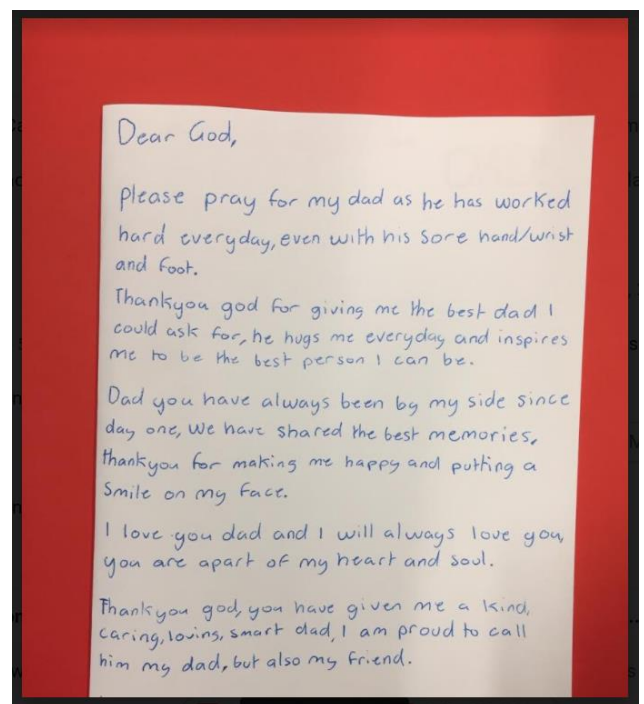 Dear God,
Please pray for my dad as he has worked
hard everyday, even with his sore hand/wrist
and foot.
Thankyou god for giving me the best dad I
could ask for, he hugs me everyday and inspires
me to be the best person I can be.
Dad you have always been by my side since
day one, We have shared the best memories,
thankyou for making me happy and putting a
smile on my face.
I love you dad and I will always love you,
you are apart of my heart and soul.
Thankyou god, you have given me a kind,
caring, loving, smart dad, I am proud to call
him my dad, but also my friend.